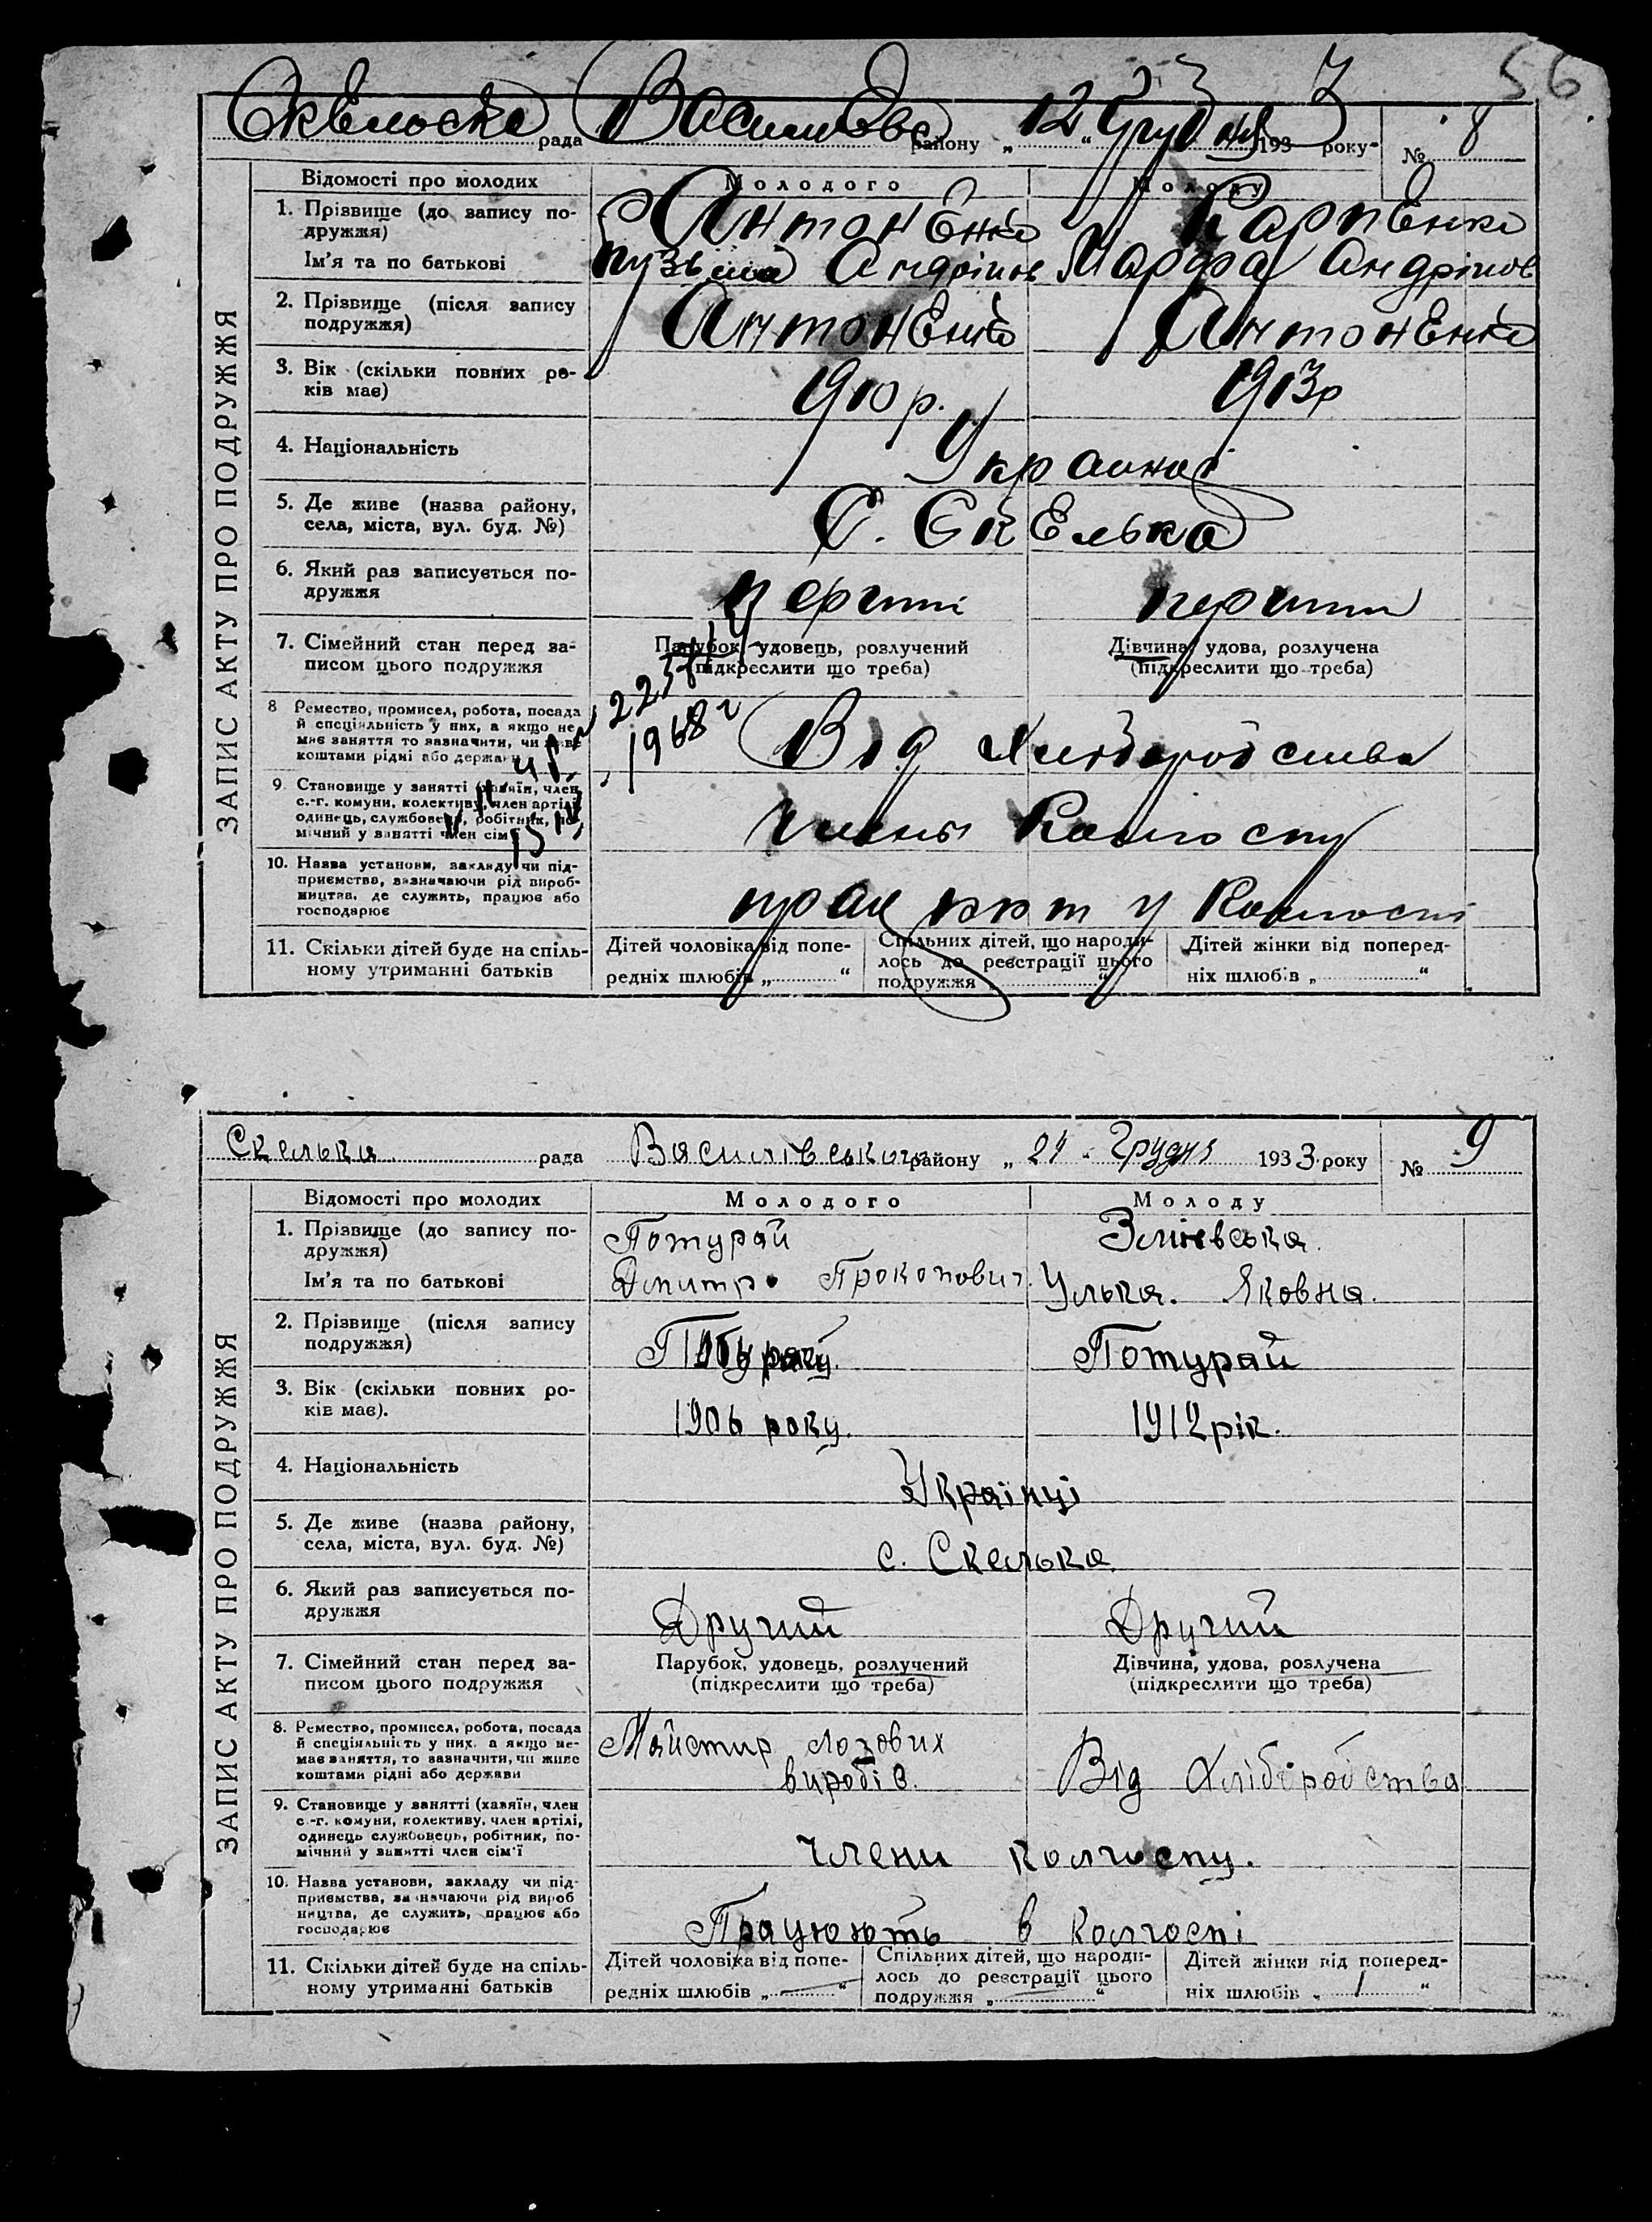 56
Скельоска рада Василівс району „ 12 “ Грудня 1933 року № 8
ЗАПИС АКТУ ПРО ПОДРУЖЖЯ
Відомості про молодих Молодого Молоду
1. Прізвище (до запису по-дружжя) Антоненко Карпенко
Ім'я та по батькові Кузьма Андріпов Марфа Андріпов
2. Прізвище (після запису подружжя) Антоненко Антоненко
3. Вік (скільки повних ро-ків має) 1910 р. 1913р
4. Національність
5. Де живе (назва району, села, міста, вул. буд. №) С. Скелька
6. Який раз записується по-дружжя перший перший
7. Сімейний стан перед за-писом цього подружжя Парубок, удовець, розлучений (підкреслити що треба) Дівчина, удова, розлучена (підкреслити що треба)
8 Ремество, промисел, робота, посада й спеціяльність у них, а якщо не має заняття то зазначити, чи живе коштами рідні або держави Від хліборобства
1968 г
9. Становище у занятті (хазяїн, член с.-г. комуни, колективу, член артілі, одинець, службовець, робітник, по-мічний у занятті член сім'ї Члены Колгоспу
10. Назва установи, закладу чи під-приємства, зазначаючи рід вироб-ництва, де служить, працює або господарює у Колгоспі
11. Скільки дітей буде на спіль-ному утриманні батьків Дітей чоловіка від попе-редніх шлюбів „ “ Спільних дітей, що народи-лось до реєстрації цього подружжя “ Дітей жінки від поперед-ніх шлюбів „ “
Скелька рада Василівського району „ 24 “ Грудня 1933 року № 9
ЗАПИС АКТУ ПРО ПОДРУЖЖЯ
Відомості про молодих Молодого Молоду
1. Прізвище (до запису по-дружжя) Потурай Зміевська.
Ім'я та по батькові Дмитро Прокопович. Улька. Яковна.
2. Прізвище (після запису подружжя) Потурай. Потурай
3. Вік (скільки повних ро-ків має). 1906 року. 1912 рік.
4. Національність Українці
5. Де живе (назва району, села, міста, вул. буд. №) с. Скелька.
6. Який раз записується по-дружжя Другий Другий
7. Сімейний стан перед за-писом цього подружжя Парубок, удовець, розлучений (підкреслити що треба) Дівчина, удова, розлучена (підкреслити що треба)
8. Ремество, промисел, робота, посада й спеціяльність у них, а якщо не-має заняття, то зазначити, чи живе коштами рідні або держави Майстир лозових виробів. Від Хліборобства
9. Становище у занятті (хазяїн, член с.-г. комуни, колективу, член артілі, одинець службовець, робітник, по-мічний у занятті член сім'ї Члени колгоспу.
10. Назва установи, закладу чи під-приємства, зазначаючи рід вироб ництва, де служить, працює або господарює Працюють в колгоспі
11. Скільки дітей буде на спіль-ному утриманні батьків Дітей чоловіка від попе-редніх шлюбів „ — “ Спільних дітей, що народи-лось до реєстрації цього подружжя „ — “ Дітей жінки від поперед-ніх шлюбів „ 1 “